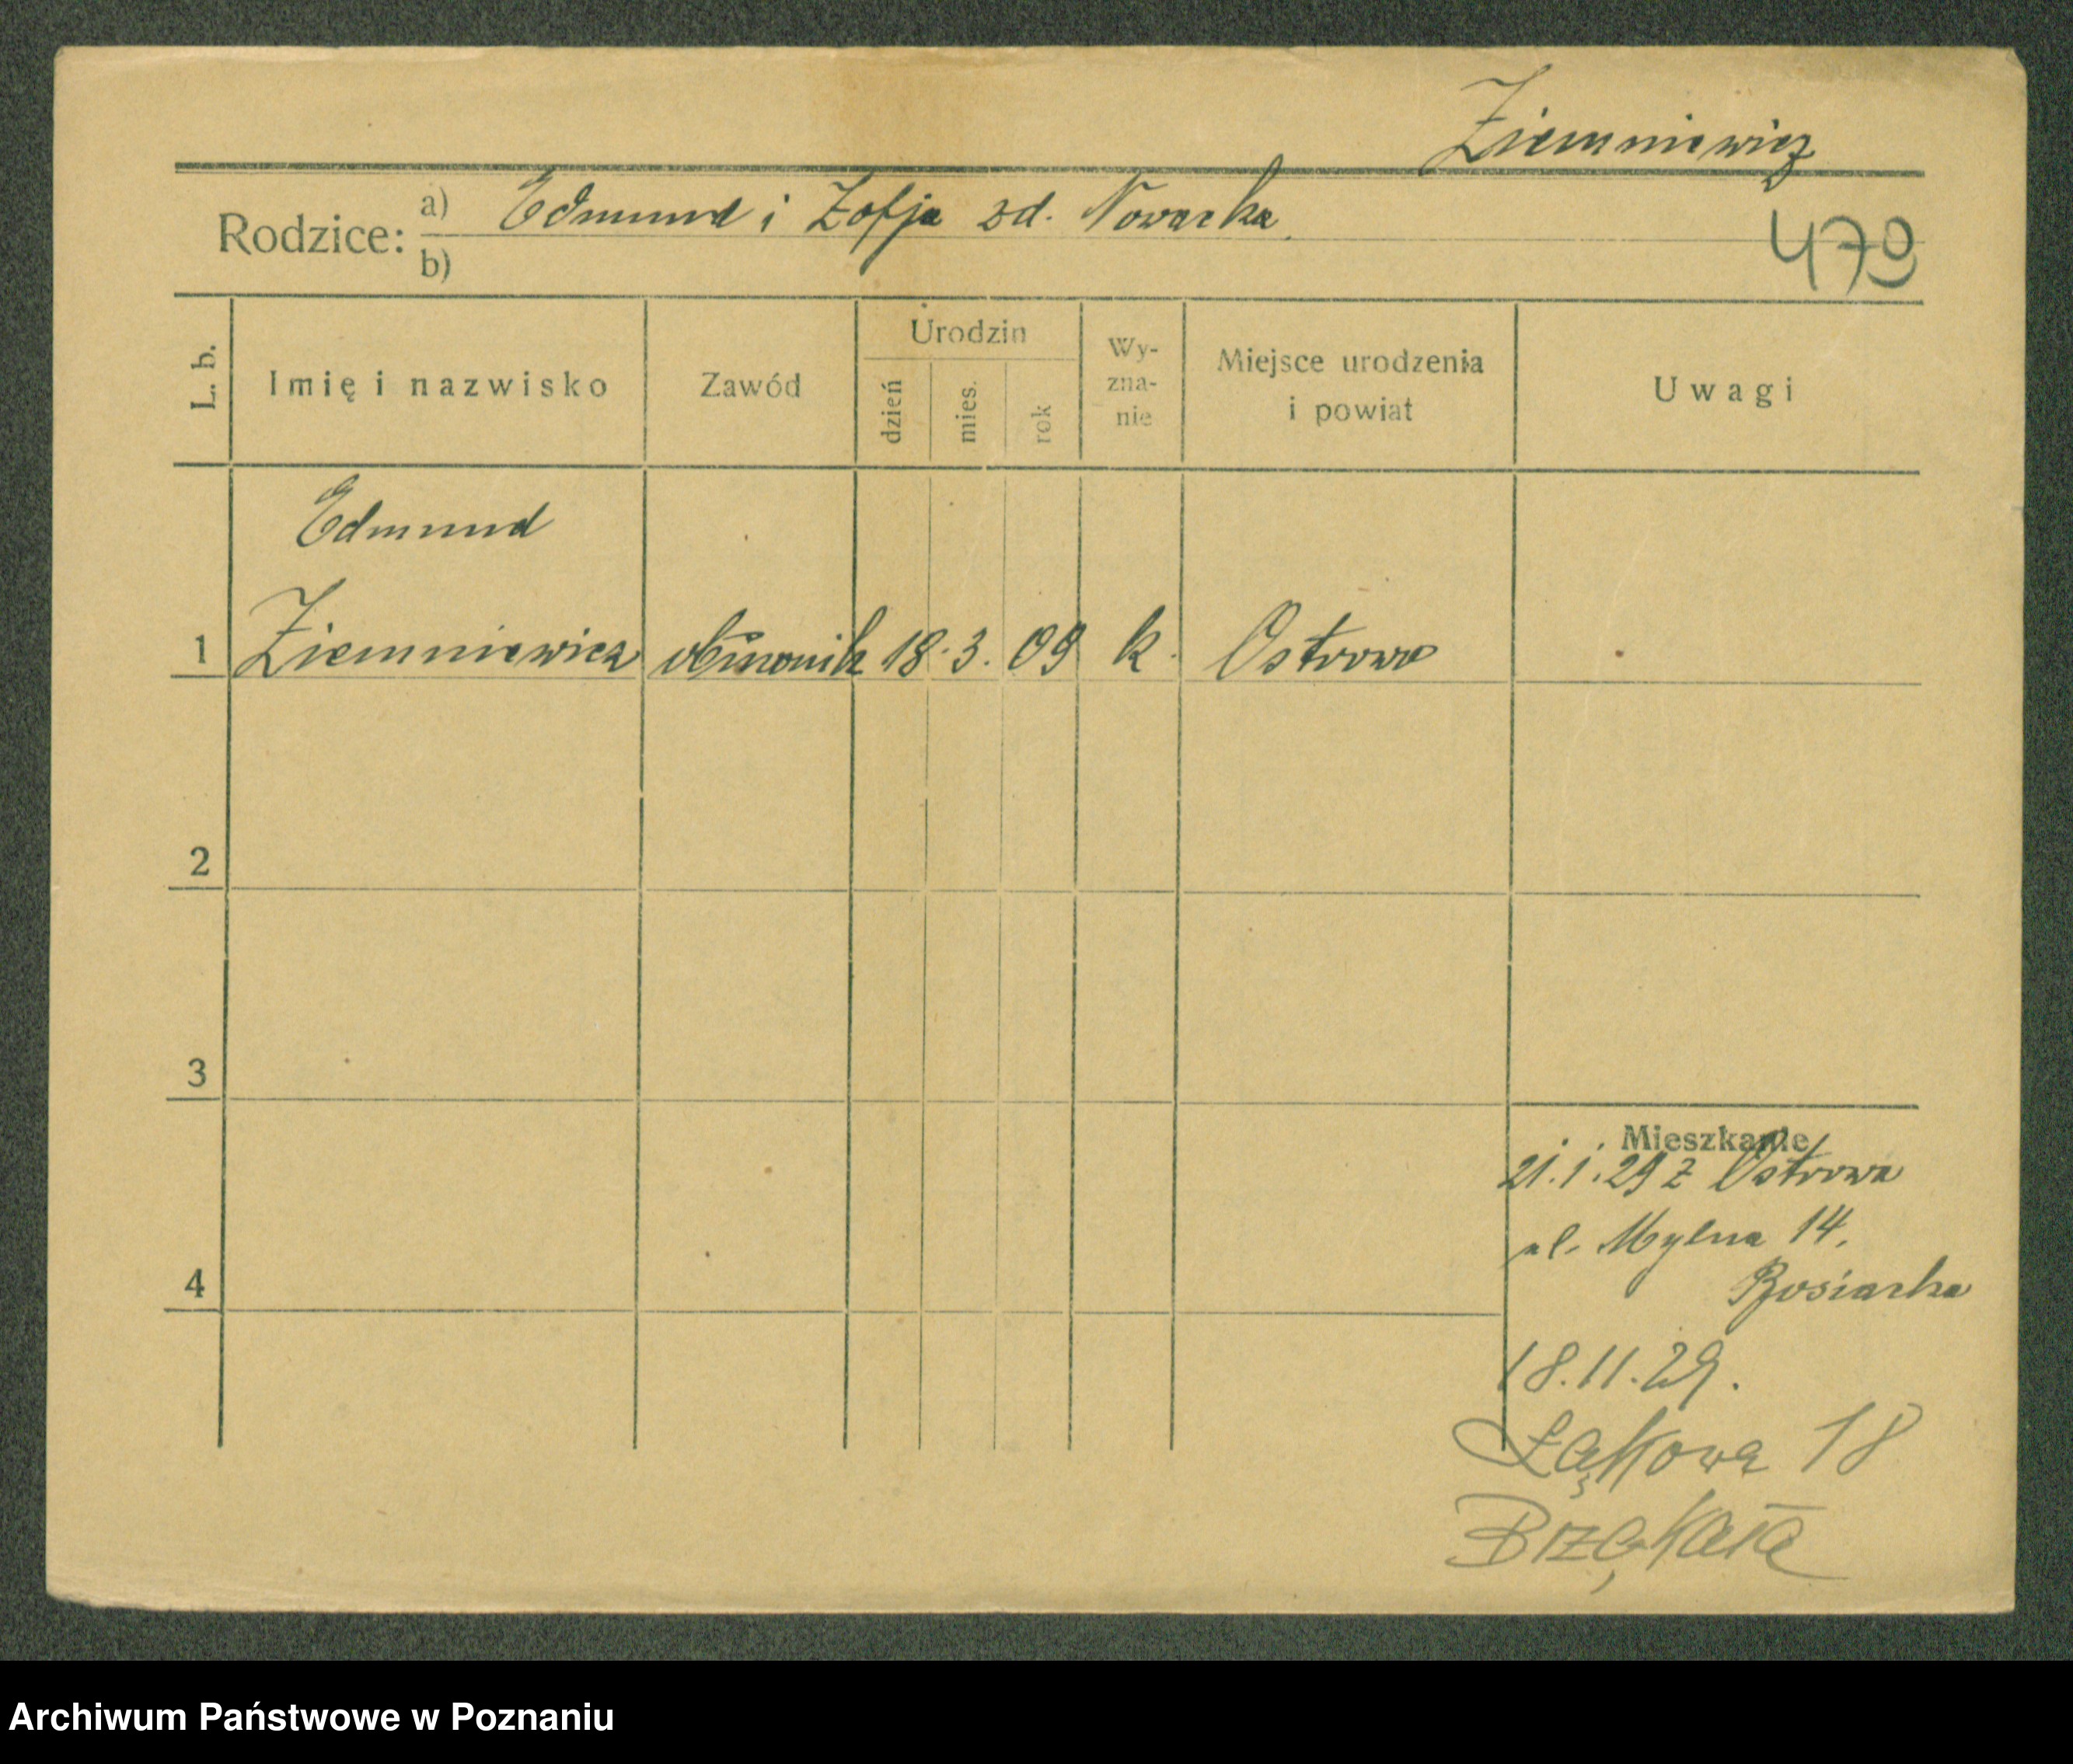 Ziemniewicz
Rodzice: a) Edmund i Zofja zd. Nowacka
b)
479
L. b.
Imię i nazwisko
Zawód
Urodzin
dzień
mies.
rok
Wy-
zna-
nie
Miejsce urodzenia
i powiat
Uwagi
Edmund
1 Ziemniewicz 18. 3. 09 k. Ostrowo
2
3
4
Mieszkanie
21.1.29 z Ostrowa
ul. Mylna 14,
18.11.29.
Łąkowa 18
Archiwum Państwowe w Poznaniu